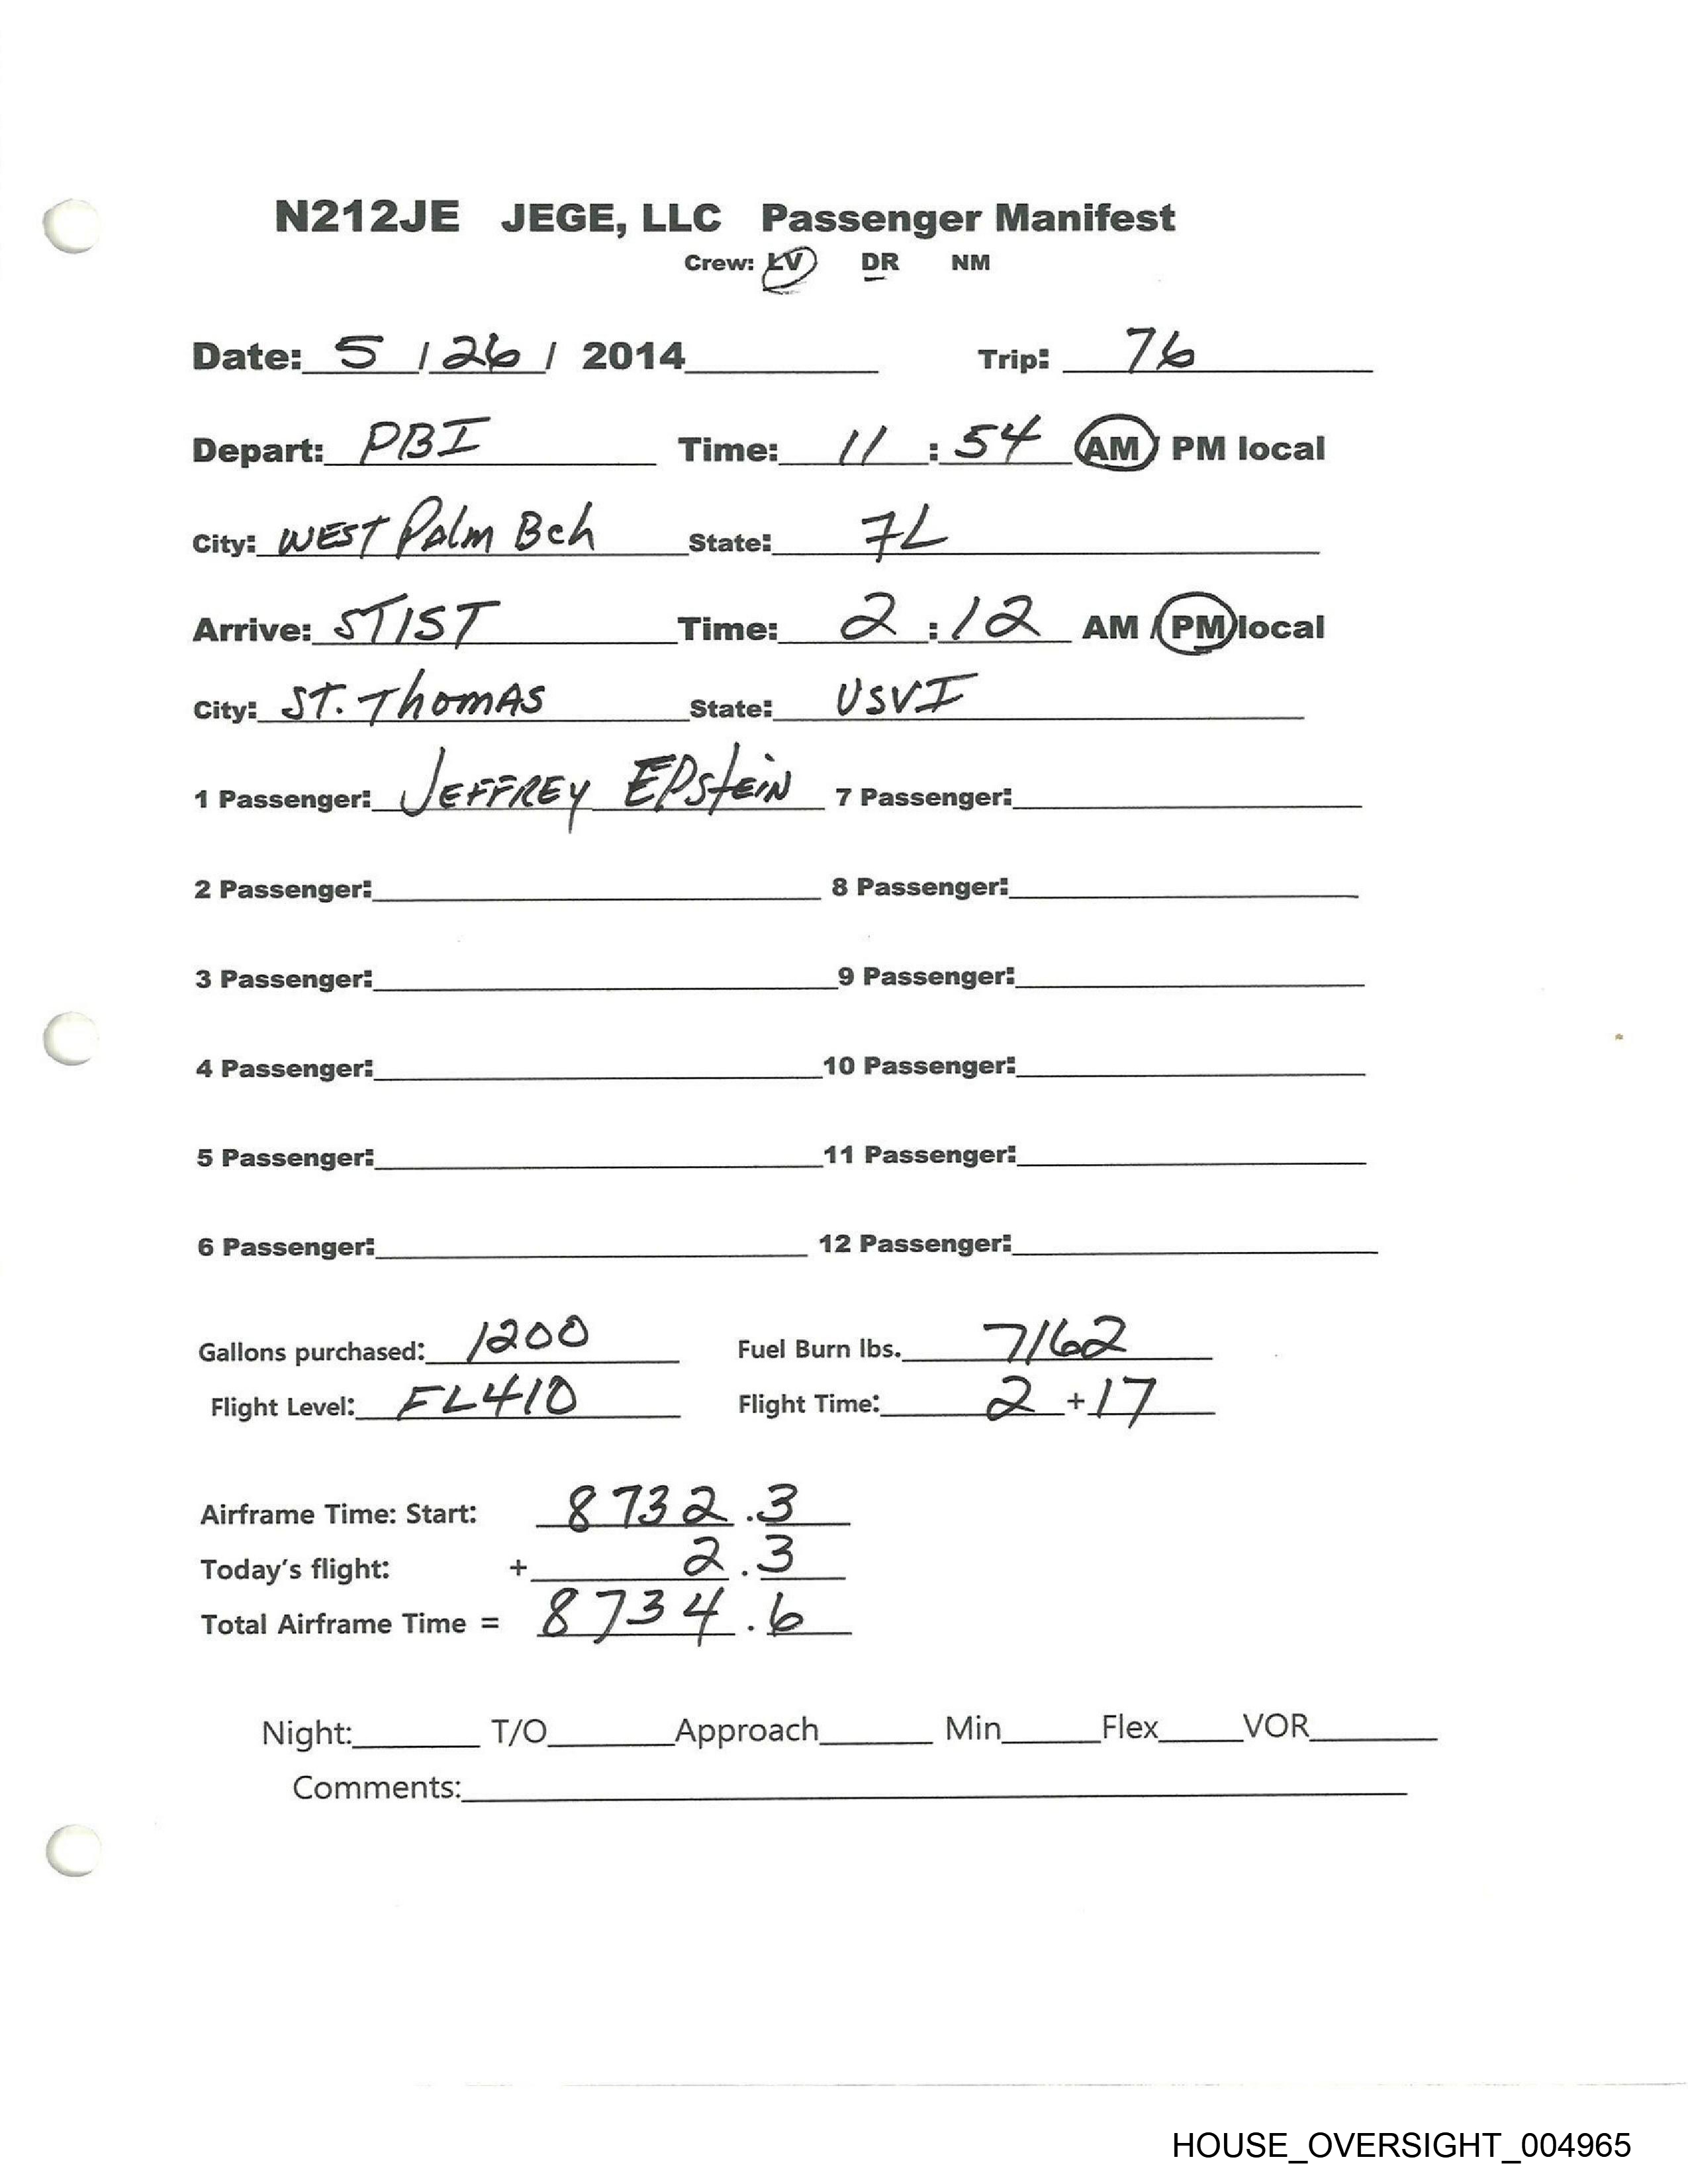 N212JE JEGE, LLC Passenger Manifest
Crew: LV DR NM
Date: 5 / 26 / 2014 Trip: 76
Depart: PBI Time: 11 : 54 AM / PM local
City: WEST Palm Bch State: FL
Arrive: STIST Time: 2 : 12 AM / PM local
City: ST. Thomas State: USVI
1 Passenger: JEFFREY EPstEiN 7 Passenger:
2 Passenger: 8 Passenger:
3 Passenger: 9 Passenger:
4 Passenger: 10 Passenger:
5 Passenger: 11 Passenger:
6 Passenger: 12 Passenger:
Gallons purchased: 1200 Fuel Burn lbs. 7162
Flight Level: FL410 Flight Time: 2 + 17
Airframe Time: Start: 8732 .3
Today's flight: + 2 .3
Total Airframe Time = 8734 .6
Night: T/O Approach Min Flex VOR
Comments:
HOUSE_OVERSIGHT_004965